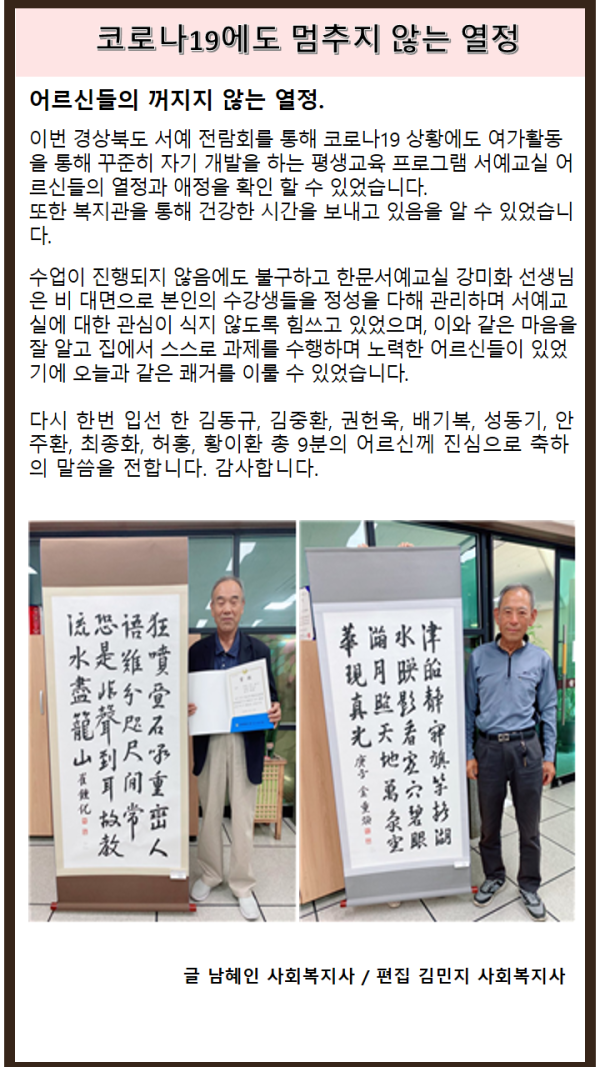 코로나19에도 멈추지 않는 열정
어르신들의 꺼지지 않는 열정.
이번 경상북도 서예 전람회를 통해 코로나19 상황에도 여가활동
을 통해 꾸준히 자기 개발을 하는 평생교육 프로그램 서예교실 어
르신들의 열정과 애정을 확인 할 수 있었습니다.
또한 복지관을 통해 건강한 시간을 보내고 있음을 알 수 있었습니
다.
수업이 진행되지 않음에도 불구하고 한문서예교실 강미화 선생님
은 비 대면으로 본인의 수강생들을 정성을 다해 관리하며 서예교
실에 대한 관심이 식지 않도록 힘쓰고 있었으며, 이와 같은 마음을
잘 알고 집에서 스스로 과제를 수행하며 노력한 어르신들이 있었
기에 오늘과 같은 쾌거를 이룰 수 있었습니다.
다시 한번 입선 한 김동규, 김중환, 권헌욱, 배기복, 성동기, 안
주환, 최종화, 허홍, 황이환 총 9분의 어르신께 진심으로 축하
의 말씀을 전합니다. 감사합니다.
狂噴疊石吼重巒人
語難分咫尺間常
恐是非聲到耳故教
流水盡籠山 崔鍾化
静
水 影看 穴碧眼
滿月照天地萬 空
華現真光 庚子 金重煥
글 남혜인 사회복지사 / 편집 김민지 사회복지사